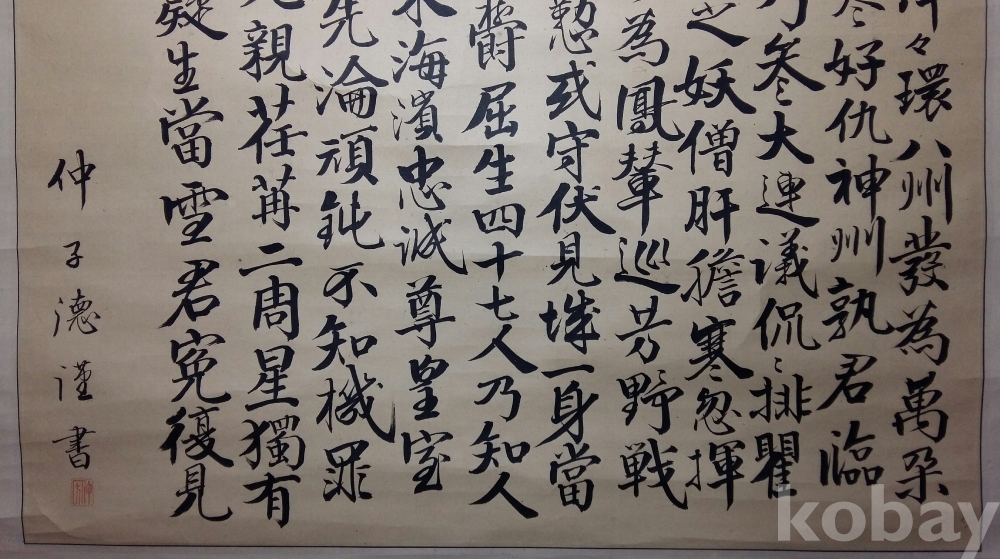 洋々環八州發為萬朶
盡好仇神州孰君臨
乃参大連議侃々排瞿
之妖僧肝膽寒忽揮
為鳳輦巡芳野戦
懃或守伏見城一身當
欝屈生四十七人乃知人
水海濱忠誠尊皇室
先淪頑鈍不知機罪
親荏苒二周星獨有
疑生當雪君冤復見
仲子徳謹書
kobay